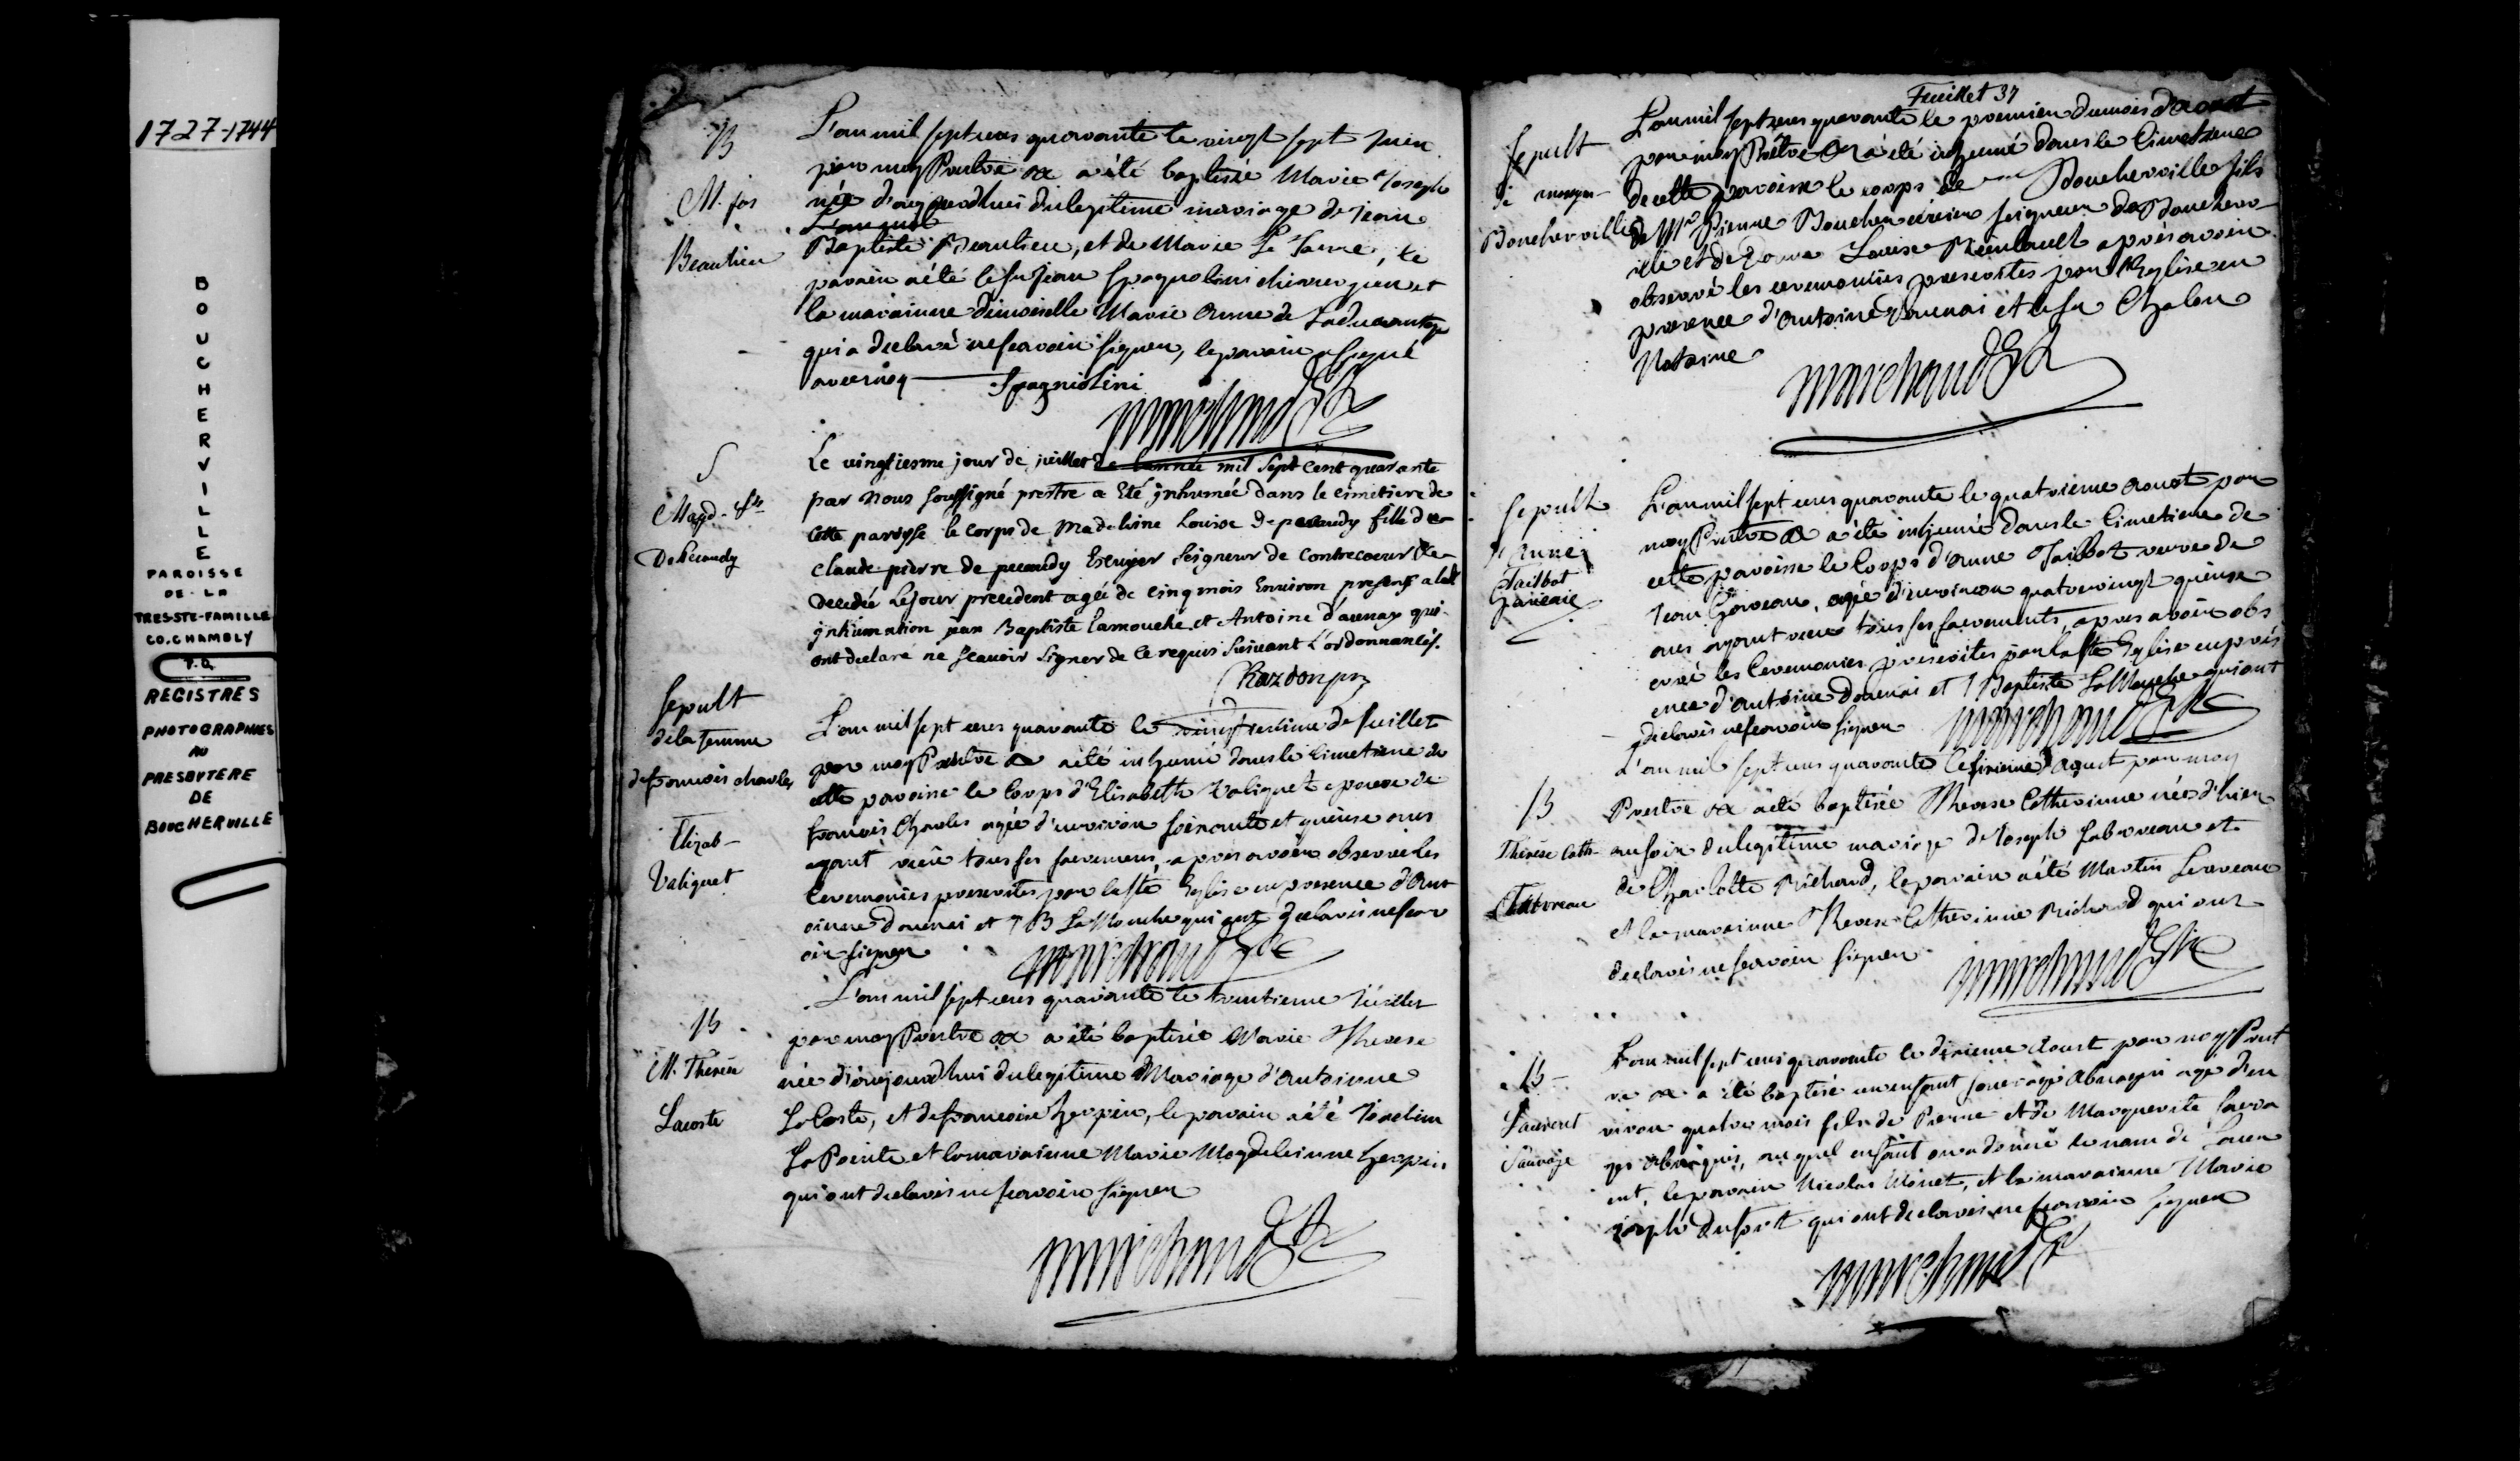 1727-1744
BOUCHERVILLE
PAROISSE
DE LA
TRES-STE-FAMILLE
CO. CHAMBLY
P.Q.
REGISTRES
PHOTOGRAPHIES
AU
PRESBYTERE
DE
BOUCHERVILLE
B
M. Jos
Beaulieu
L'an mil sept cens quarante le vingt sept Juin
par moy Prestre &c a été baptisée Marie Joseph
née d'aujourdhui du legitime mariage de Jean
Baptiste Beaulieu, et de Marie , le
parain a été le Sr Jean Spagnolini chirurgien et
la maraine demoiselle Marie Anne de
qui a declaré ne scavoir signer, le parain a signé
avec moy Spagniolini
Marchand Ptre
S
Magd. Ls
De Pecaudy
Le vingtiesme jour de juillet de l'année mil Sept Cent quarante
par Nous soussigné prestre a Eté jnhumée dans le cimetiere de
cette paroisse le corps de Madeleine Louise de pecaudy fille de
Claude pierre de pecaudy Escuyer Seigneur de Contrecoeur &c
decedée Le jour precedent agée de cinq mois Environ presens a lad
jnhumation jean Baptiste Lamouche et Antoine daunay qui
ont declaré ne scavoir signer de ce requis suivant L'ordonnance.
Razdon ptr
Sepult
de la femme
de francois charles
Elizab
Valiquet
L'an mil sept cens quarante le de Juillet
par moy Prestre &c a été inhumé dans le cimetiere de
cette paroisse le corps d'Elisabeth Valiquet epouse de
francois Charles agée d'environ soixante et quinse ans
ayant receu tous ses sacremens, apres avoir observé les
ceremonies prescrites par la Ste Eglise en presence d'Ant
oinne Dounai et J B LaMouche qui ont declarés ne scav
oir signer
Marchand Ptre
B
M. Thérèse
Lacoste
L'an mil sept cens quarante le trentieme Juillet
par moy Prestre &c a été baptisée Marie Therese
née d'aujourdhui du legitime Mariage d'Antoinne
LaCoste, et de francoise herpin, le parain a été Joachim
LaPointe et la marainne Marie Magdeleinne herpin
qui ont declarés ne scavoir signer
Marchand Ptre
Feuillet 37
Sepult
de
Boucherville
L'an mil sept cens quarante le premier du mois d'aoust
par moy Prêtre &c a été inhumé dans le Cimetiere
de cette paroisse le corps de Boucherville fils
de Mr Pierre Boucher ecuier seigneur de Boucherv
ille et de Dame Louise Reimbault apres avoir
observé les ceremonies prescrites par l'Eglise en
presence d'Antoine Dounai et le Sr Chalou
Notaire
Marchand Ptre
Sepult
d'Anne
Tailbot
Gareau
L'an mil sept cens quarante le quatrieme aoust par
moy Prestre &c a été inhumé dans le Cimetiere de
cette paroisse le Corps d'Anne Tailbot veuve de
Jean Gareau, agée d'environ quatrevingt quinse
ans ayant receu tous ses sacrements, apres avoir obs
ervé les Ceremonies prescrites par la Ste Eglise en prés
ence d'Antoine Dounai et J Baptiste LaMouche qui ont
declarés ne scavoir signer Marchand Ptre
B
Thérèse Cath
Labreau
L'an mil sept cens quarante le sixieme d'Aoust par moy
Prestre &c a été baptisée Therese Catherinne née d'hier
au soir du legitime mariage de Joseph et
de Charlotte Richard, le parain a été Martin
et la marainne Therese Catherinne Richard qui ont
declarés ne scavoir signer
Marchand Ptre
B
Laurent
Sauvage
L'an mil sept cens quarante le dixieme Aoust par moy Prest
re &c a été baptisé un enfant sauvage Abnaqui agé d'en
viron quatre mois fils de Pierre et de Marguerite sauva
ges abnaquis, auquel enfant on a donné le nom de Laur
ent, le parain Nicolas , et la marainne Marie
Joseph Dufort qui ont declarés ne scavoir signer
Marchand Ptre